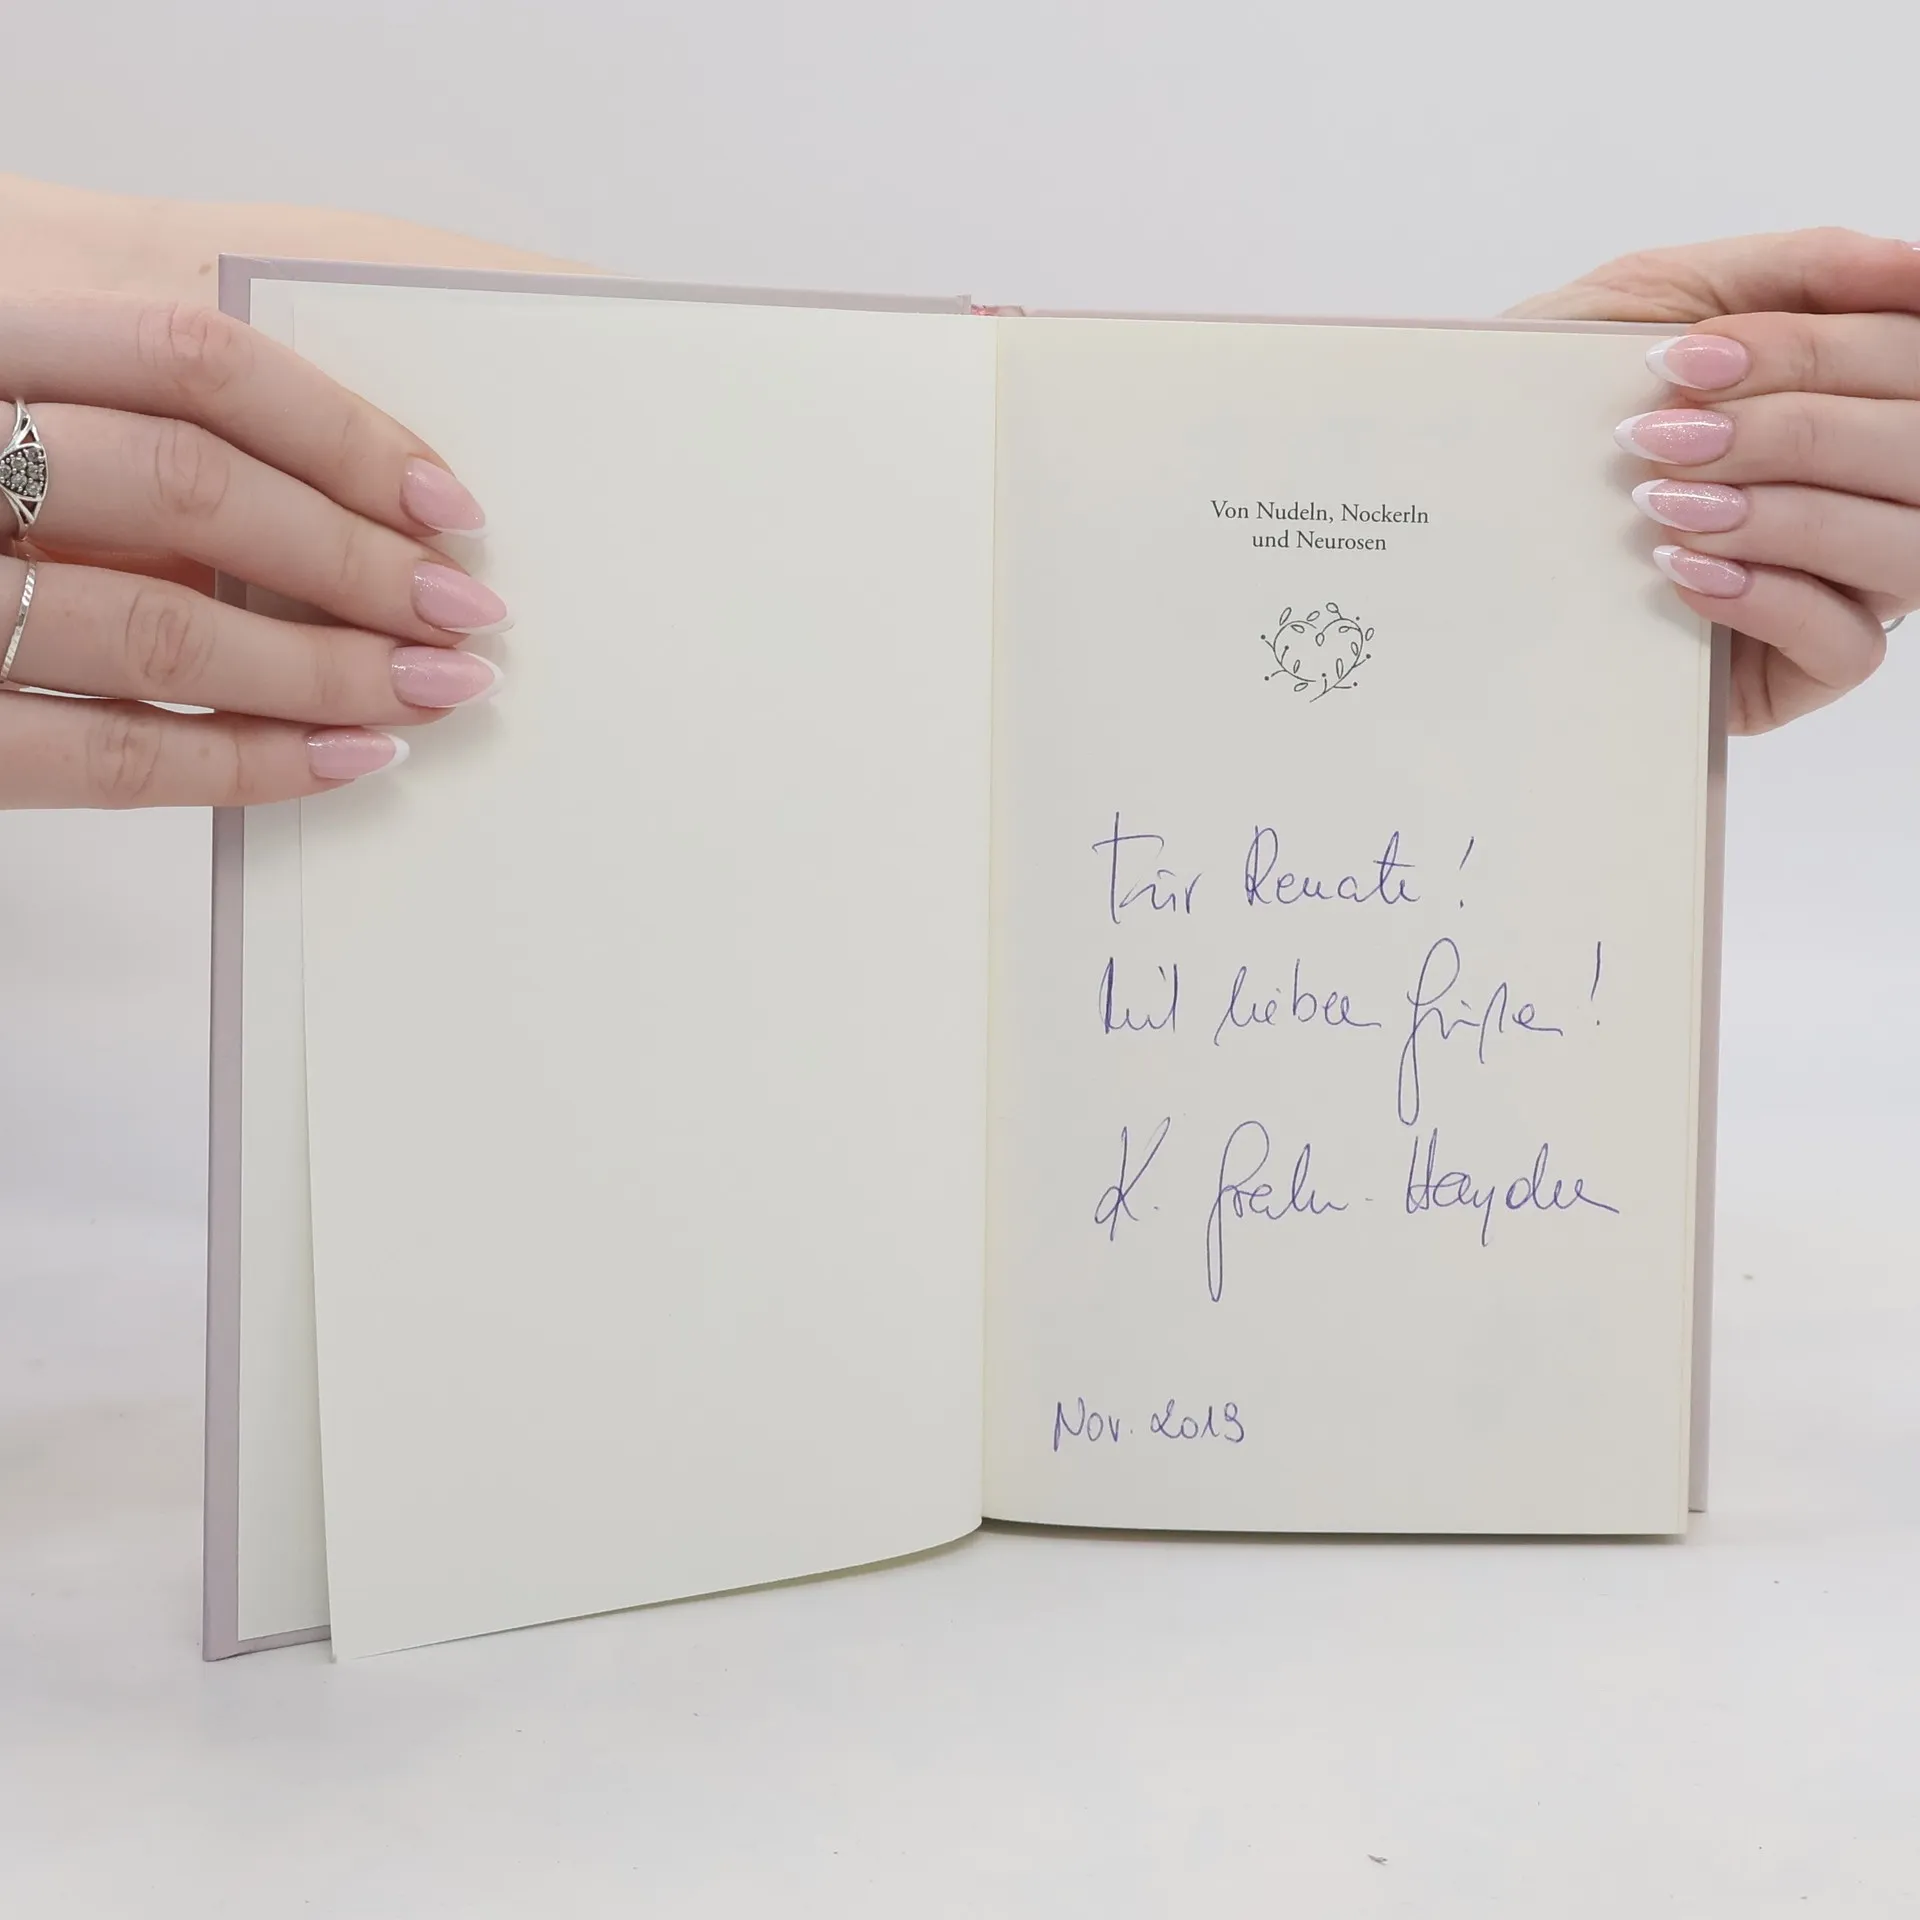 Von Nudeln, Nockerln
und Neurosen
Für Renate!
Mit lieben Grüßen!
K. Grahn-Hayden
Nov. 2019